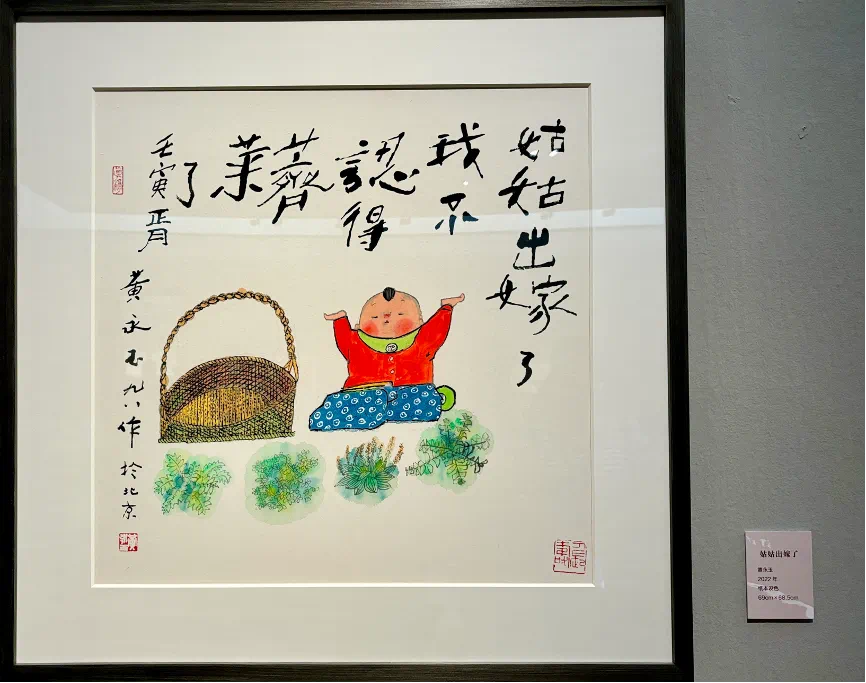 姑姑出嫁了
我不
認得
薺
菜
了
壬寅正月 黄永玉九八作於北京
姑姑出嫁了
黄永玉
2022 年
纸本设色
69cm×68.5cm